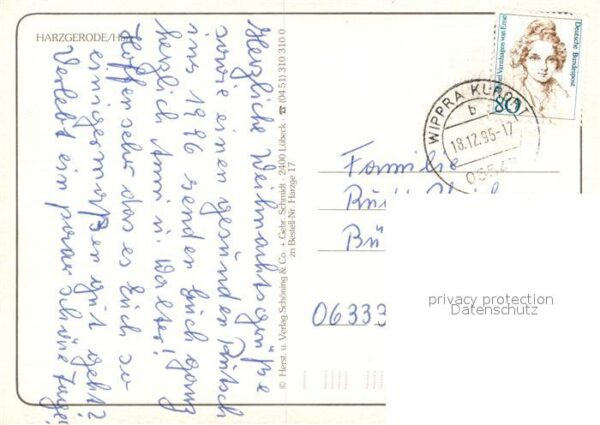 HARZGERODE/Harz
Herzliche Weihnachtsgrüße
sowie einen gesunden Rutsch
ins 1996 senden Euch ganz
herzlich Anni u. Walter!
Hoffen sehr das es Euch so
einigermaßen gut geht?
Verlebt ein paar schöne Tage!
© Herst. u. Verlag Schöning & Co. + Gebr. Schmidt · 2400 Lübeck · ☎ (04 51) 310 310 0
zu Bestell-Nr. Harzge 17
Deutsche Bundespost
Varnhagen von Ense
80
WIPPRA KURORT
b
18.12.95-17
Familie
06333
privacy protection
Datenschutz